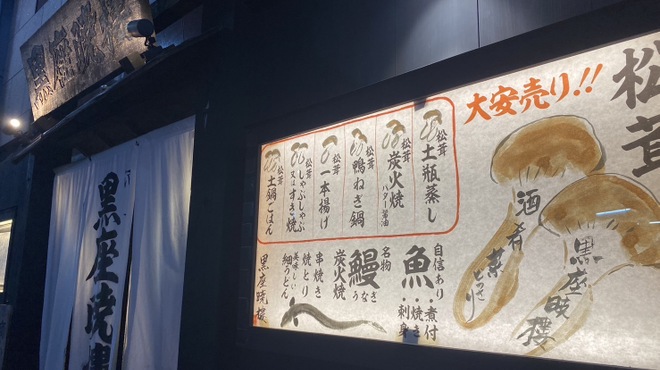 黒座暁樓
黒座暁樓
松茸
大安売り!!
酒
肴
黒座暁樓
松茸
土瓶蒸し
松茸
炭火焼
バター醤油
松茸
鴨ねぎ鍋
松茸
一本揚げ
松茸
しゃぶしゃぶ
又はすき焼
松茸
土鍋ごはん
自信あり
魚
・煮付
・焼き
・刺身
名物
鰻
うなぎ
炭火焼
串焼き
焼とり
美味しい
細うどん
黒座暁樓